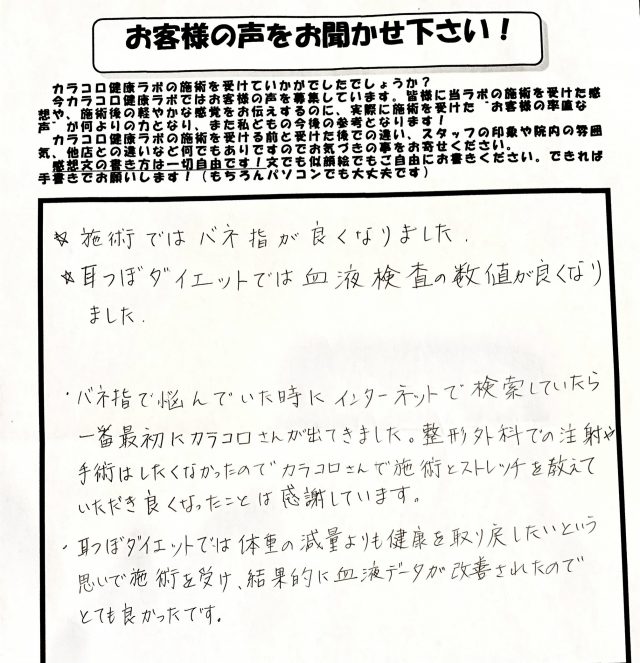 お客様の声をお聞かせ下さい！
カラコロ健康ラボの施術を受けていかがでしたでしょうか？
今カラコロ健康ラボではお客様の声を募集しています。皆様に当ラボの施術を受けた感
想や、施術後の軽やかな感覚をお伝えするのに、実際に施術を受けた“お客様の率直な
声”が何よりの力となり、また私どもの今後の参考となります！
カラコロ健康ラボの施術を受ける前と受けた後での違い、スタッフの印象や院内の雰囲
気、他店との違いなど何でもありですのでお気づきの事をお寄せください。
感想文の書き方は一切自由です！文でも似顔絵でもご自由にお書きください。できれば
手書きでお願いします！（もちろんパソコンでも大丈夫です）
☆ 施術ではバネ指が良くなりました.
☆ 耳つぼダイエットでは血液検査の数値が良くなり
ました.
・バネ指で悩んでいた時にインターネットで検索していたら
一番最初にカラコロさんが出てきました。整形外科での注射や
手術はしたくなかったのでカラコロさんで施術とストレッチを教えて
いただき良くなったことは感謝しています。
・耳つぼダイエットでは体重の減量よりも健康を取り戻したいという
思いで施術を受け、結果的に血液データが改善されたので
とても良かったです。